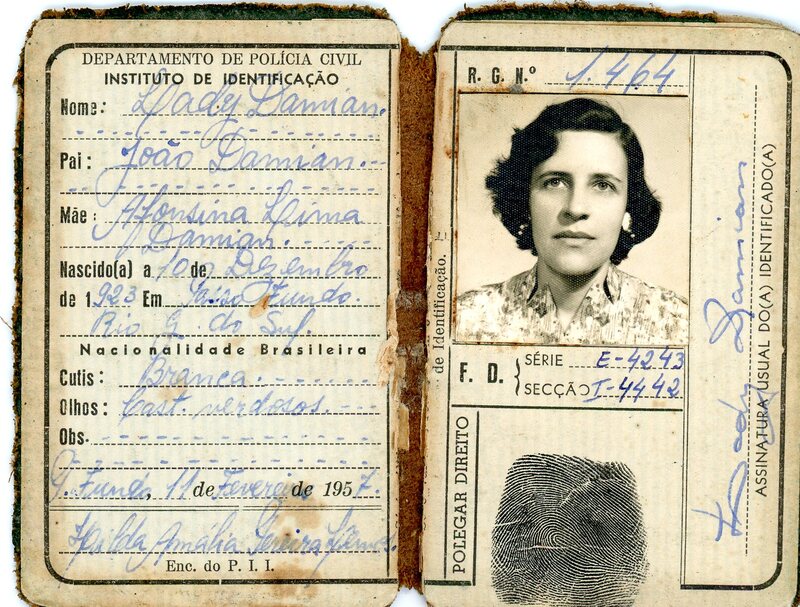 DEPARTAMENTO DE POLÍCIA CIVIL
INSTITUTO DE IDENTIFICAÇÃO
Nome: Dady Damian.
Pai: João Damian.
Mãe: Afonsina Lima
Damian.
Nascido(a) a 10 de Dezembro
de 1923 Em Passo Fundo.
Rio G. do Sul.
Nacionalidade Brasileira
Cutis: Branca.
Olhos: Cast. verdosos.
Obs.
P. Fundo, 11 de Fevereiro de 1957.
Hilda Amália Pereira
Enc. do P. I. I.
de Identificação.
R. G. N.º 1.464
F. D. SÉRIE E-4243
SECÇÃO I-4442
POLEGAR DIREITO
Dady Damian
ASSINATURA USUAL DO(A) IDENTIFICADO(A)